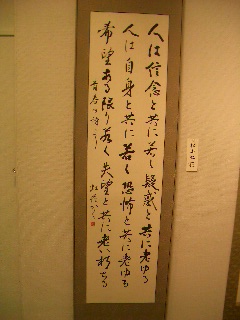 人は信念と共に若く 疑惑と共に老ゆる
人は自身と共に若く 恐怖と共に老ゆる
希望ある限り若く 失望と共に老い朽ちる
青春の詩より